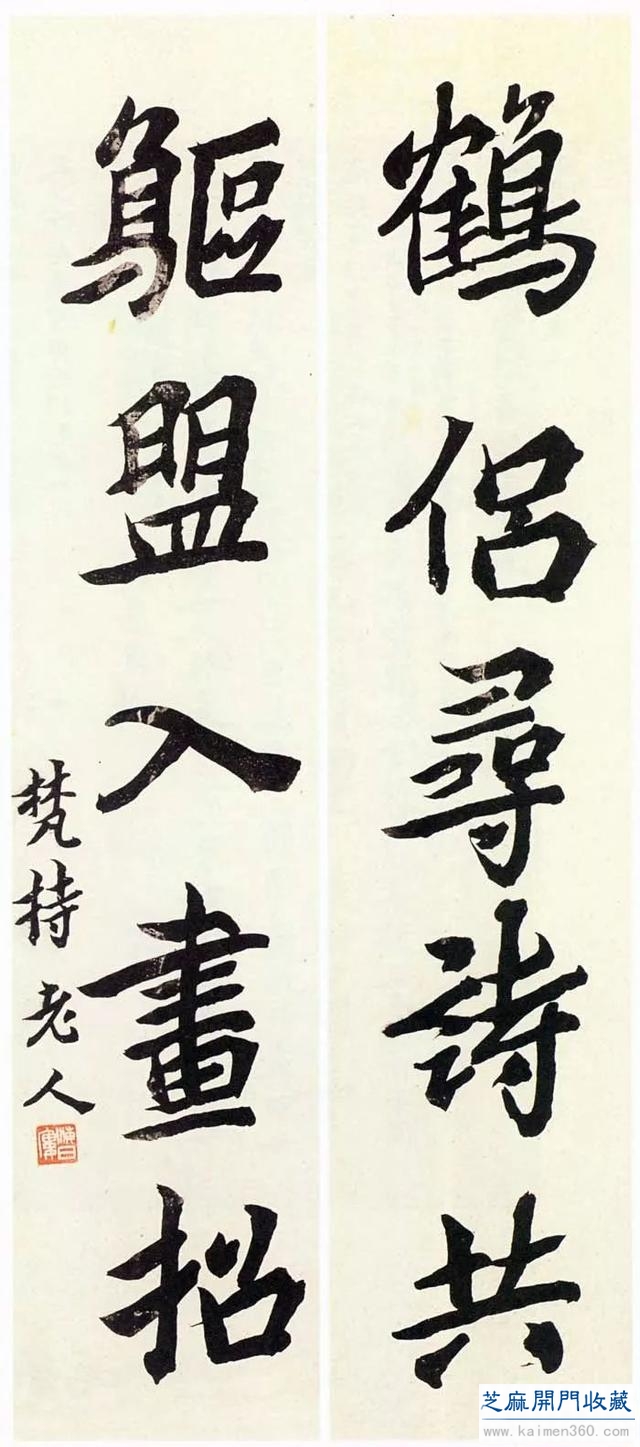 鶴侶尋詩共
鷗盟入畫招
梵持老人
芝麻開門收藏
www.kaimen360.com